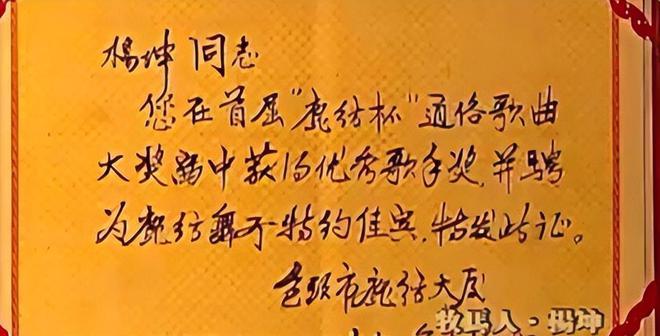 杨坤同志
您在首届"鹿纺杯"通俗歌曲
大奖赛中获得优秀歌手奖,并聘
为鹿纺舞厅特约佳宾,特发此证。
包头市鹿纺大厦
牧马人·杨坤